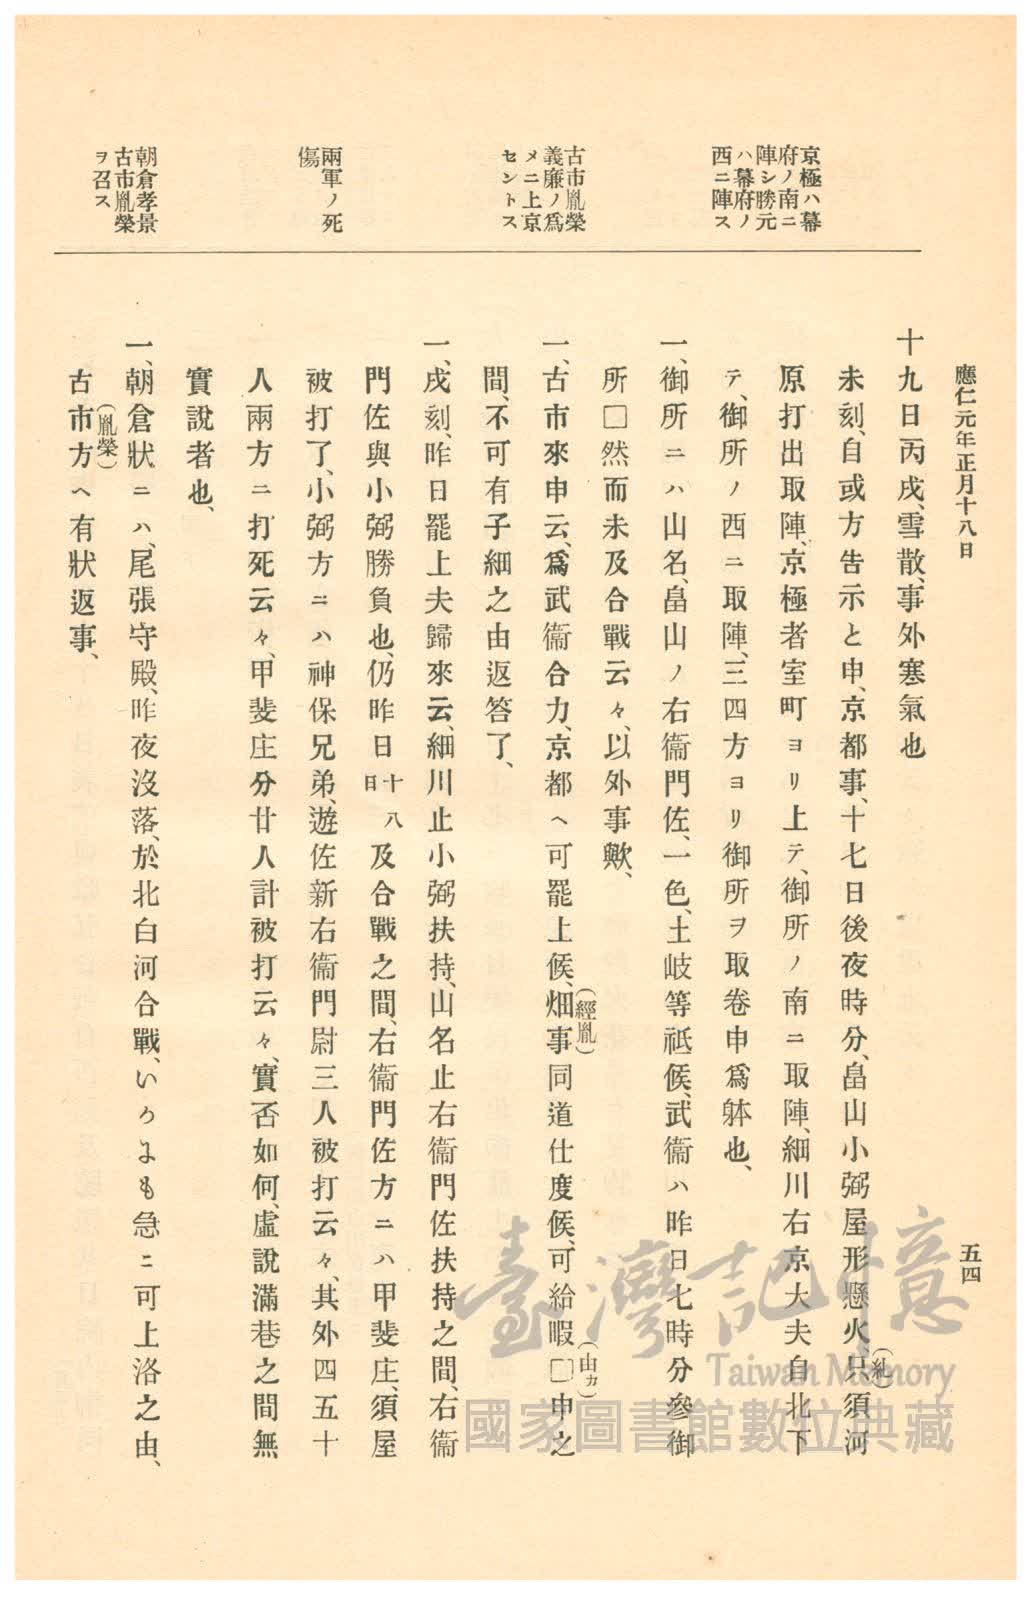 應仁元年正月十八日
五四
京極ハ幕
府ノ南ニ
陣シ勝元
ハ幕府ノ
西ニ陣ス
古市胤榮
義廉ノ爲
メニ上京
セントス
兩軍ノ死
傷
朝倉孝景
古市胤榮
ヲ召ス
十九日丙戌、雪散、事外寒氣也
未刻、自或方告示と申、京都事、十七日後夜時分、畠山小弼屋形懸火、只須河
(糺)
原打出取陣、京極者室町ヨリ上テ、御所ノ南ニ取陣、細川右京大夫自北下
テ、御所ノ西ニ取陣、三四方ヨリ御所ヲ取卷申爲躰也、
一、御所ニハ山名、畠山ノ右衞門佐、一色、土岐等祗候、武衞ハ昨日七時分參御
所□然而未及合戰云々、以外事歟、
一、古市來申云、爲武衞合力、京都ヘ可罷上候、畑事同道仕度候、可給暇□申之
(經胤)
(由カ)
間、不可有子細之由返答了、
一、戌刻、昨日罷上夫歸來云、細川止小弼扶持、山名止右衞門佐扶持之間、右衞
門佐與小弼勝負也、仍昨日十八日及合戰之間、右衞門佐方ニハ甲斐庄、須屋
被打了、小弼方ニハ神保兄弟、遊佐新右衞門尉三人被打云々、其外四五十
人兩方ニ打死云々、甲斐庄分廿人計被打云々、實否如何、虛說滿巷之間無
實說者也、
一、朝倉狀ニハ、尾張守殿、昨夜沒落、於北白河合戰、いかにも急ニ可上洛之由、
古市方ヘ有狀返事、
(胤榮)
臺灣記憶
Taiwan Memory
國家圖書館數位典藏